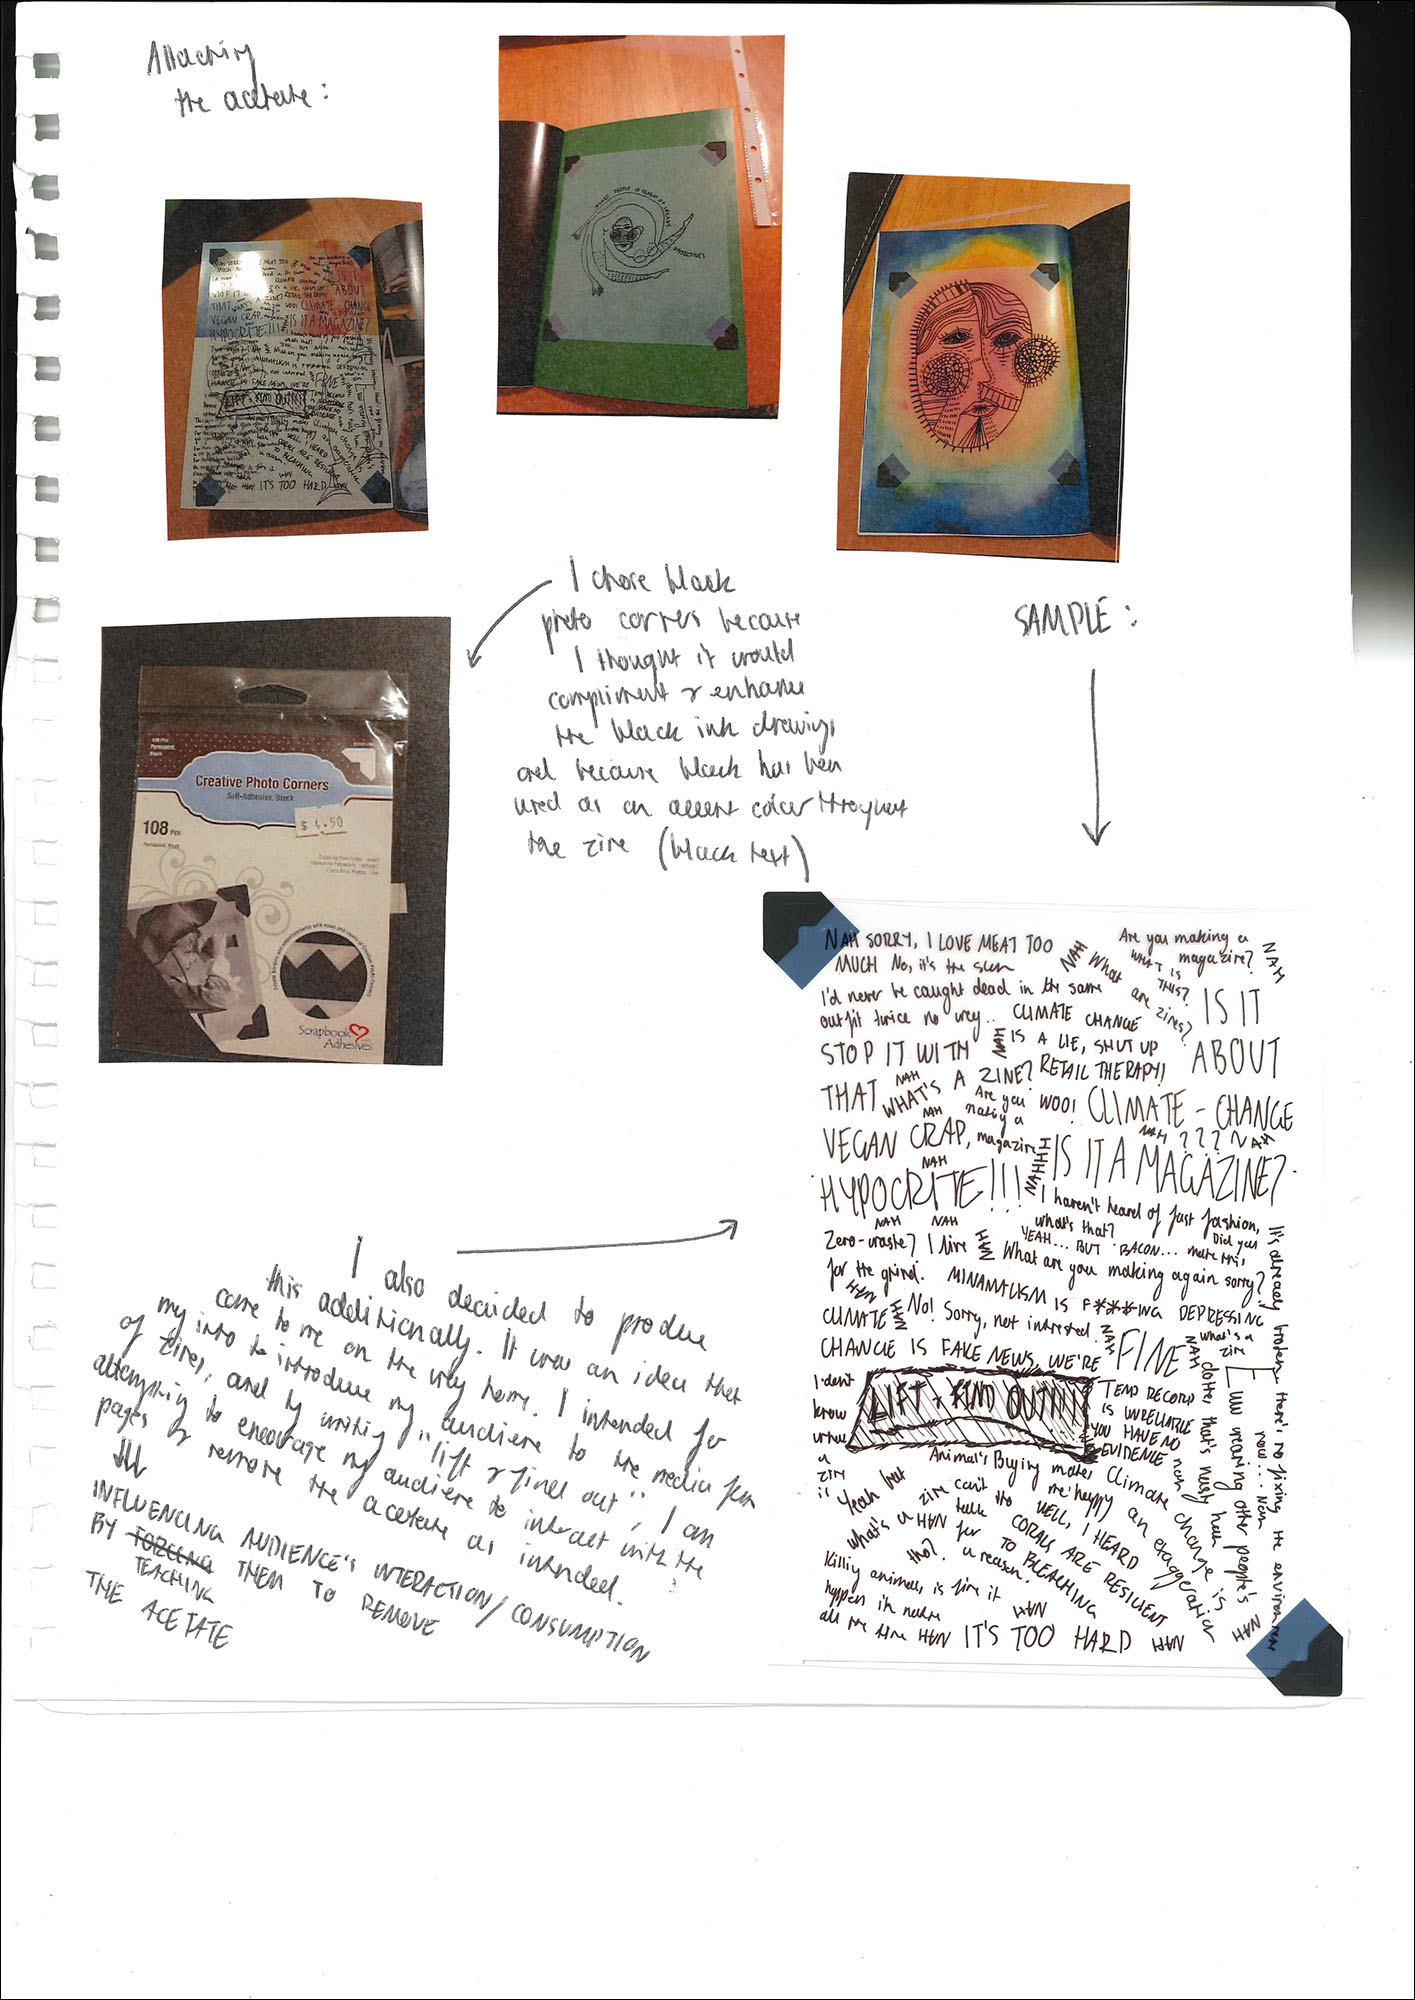 Attaching
the acetate:
IMAGES PEOPLE IN SEARCH OF
OBJECTIVES
I chose black
photo corners because
I thought it would
compliment & enhance
the black ink drawings
and because black has been
used as an accent color throughout
the zine (black text)
SAMPLE:
108 Pcs
Permanent,
Black
Creative Photo Corners
Self-Adhesive, Black
$4.50
108 Pcs
Permanent, Black
Scrapbook
Adhesives
I also decided to produce
this additionally. It was an idea that
came to me on the way home. I intended for
my intro to introduce my audience to the media form
of zines, and by writing "lift & find out", I am
attempting to encourage my audience to interact with the
pages & remove the acetate as intended.
INFLUENCING AUDIENCE'S INTERACTION/CONSUMPTION
BY FORCING THEM TO REMOVE
TEACHING
THE ACETATE
NAH SORRY, I LOVE MEAT TOO
MUCH No, it's the slem
Are you making a
magazine?
NAH
NAH
WHAT IS
THIS?
What are zines?
I'd never be caught dead in the same
outfit twice no way.. CLIMATE CHANGE
IS IT
ABOUT
STOP IT WITH
NAH
IS A LIE, SHUT UP
THAT
NAH
WHAT'S A ZINE? RETAIL THERAPY!
Are you
making a
magazine
WOO! CLIMATE-CHANGE
VEGAN CRAP,
NAH
NAH ??? NAH
HYPOCRITE!!!
NAH
NAHHH
IS IT A MAGAZINE?
I haven't heard of fast fashion,
what's that?
Did you
make this!
NAH NAH
Zero-waste? I live
for the grind.
NAH
YEAH... BUT BACON...
What are you making again sorry?
MINAMALISM IS F***ING DEPRESSING
NAH
CLIMATE
NAH
No! Sorry, not intrested.
CHANGE IS FAKE NEWS, WE'RE
NAH
FINE
NAH
what's a
zine
I don't
know
what
a
zine
is
LIFT & FIND OUT!!!
TEMP RECORD
IS UNRELIABLE
YOU HAVE NO
EVIDENCE
nah
clothes that's nasty hah
EW wearing other people's
now... Nah
It's already broken there's no fixing the environment
Animal's Buying makes
me happy
Climate change is
an exaggeration
Yeah but
what's a
zine can't
talk
tho?
NAH for
a reason.
WELL, I HEARD
THE CORALS ARE RESILIENT
TO BLEACHING
Killing animals is fine it
happens in nature
all the time
NAH
NAH
IT'S TOO HARD
NAH
NAH